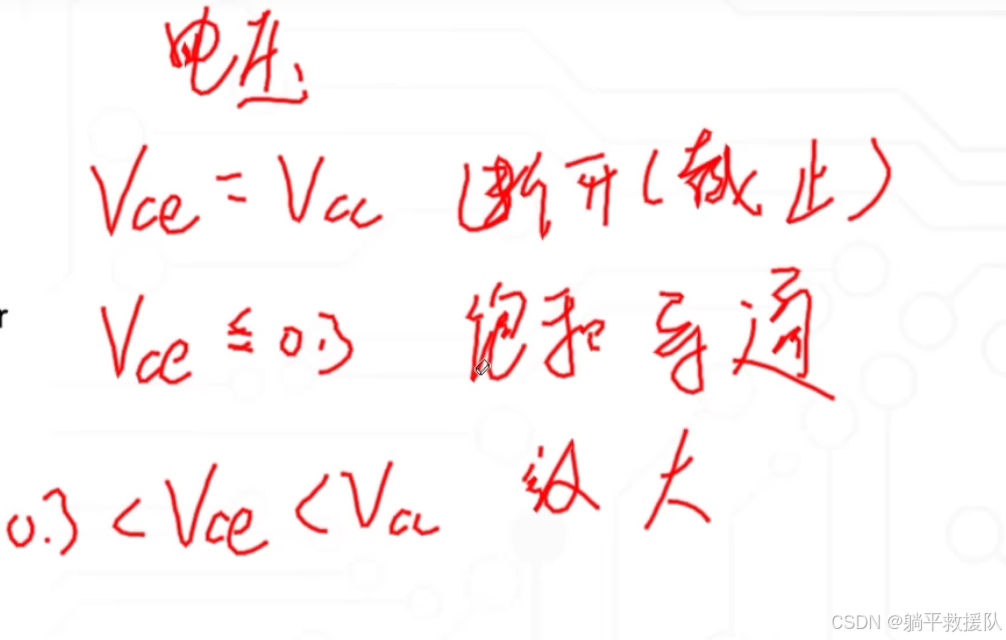 电压:
Vce = Vcc 断开(截止)
r
Vce ≤ 0.3 饱和导通
0.3 < Vce < Vcc 放大
CSDN @躺平救援队